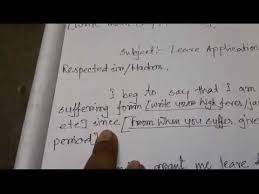 Subject:- Leave Application
Respected sir/Madam.
I beg to say that I am
suffering form [write your high fever/
etc] since [From when you suffer give
period]
grant me leave